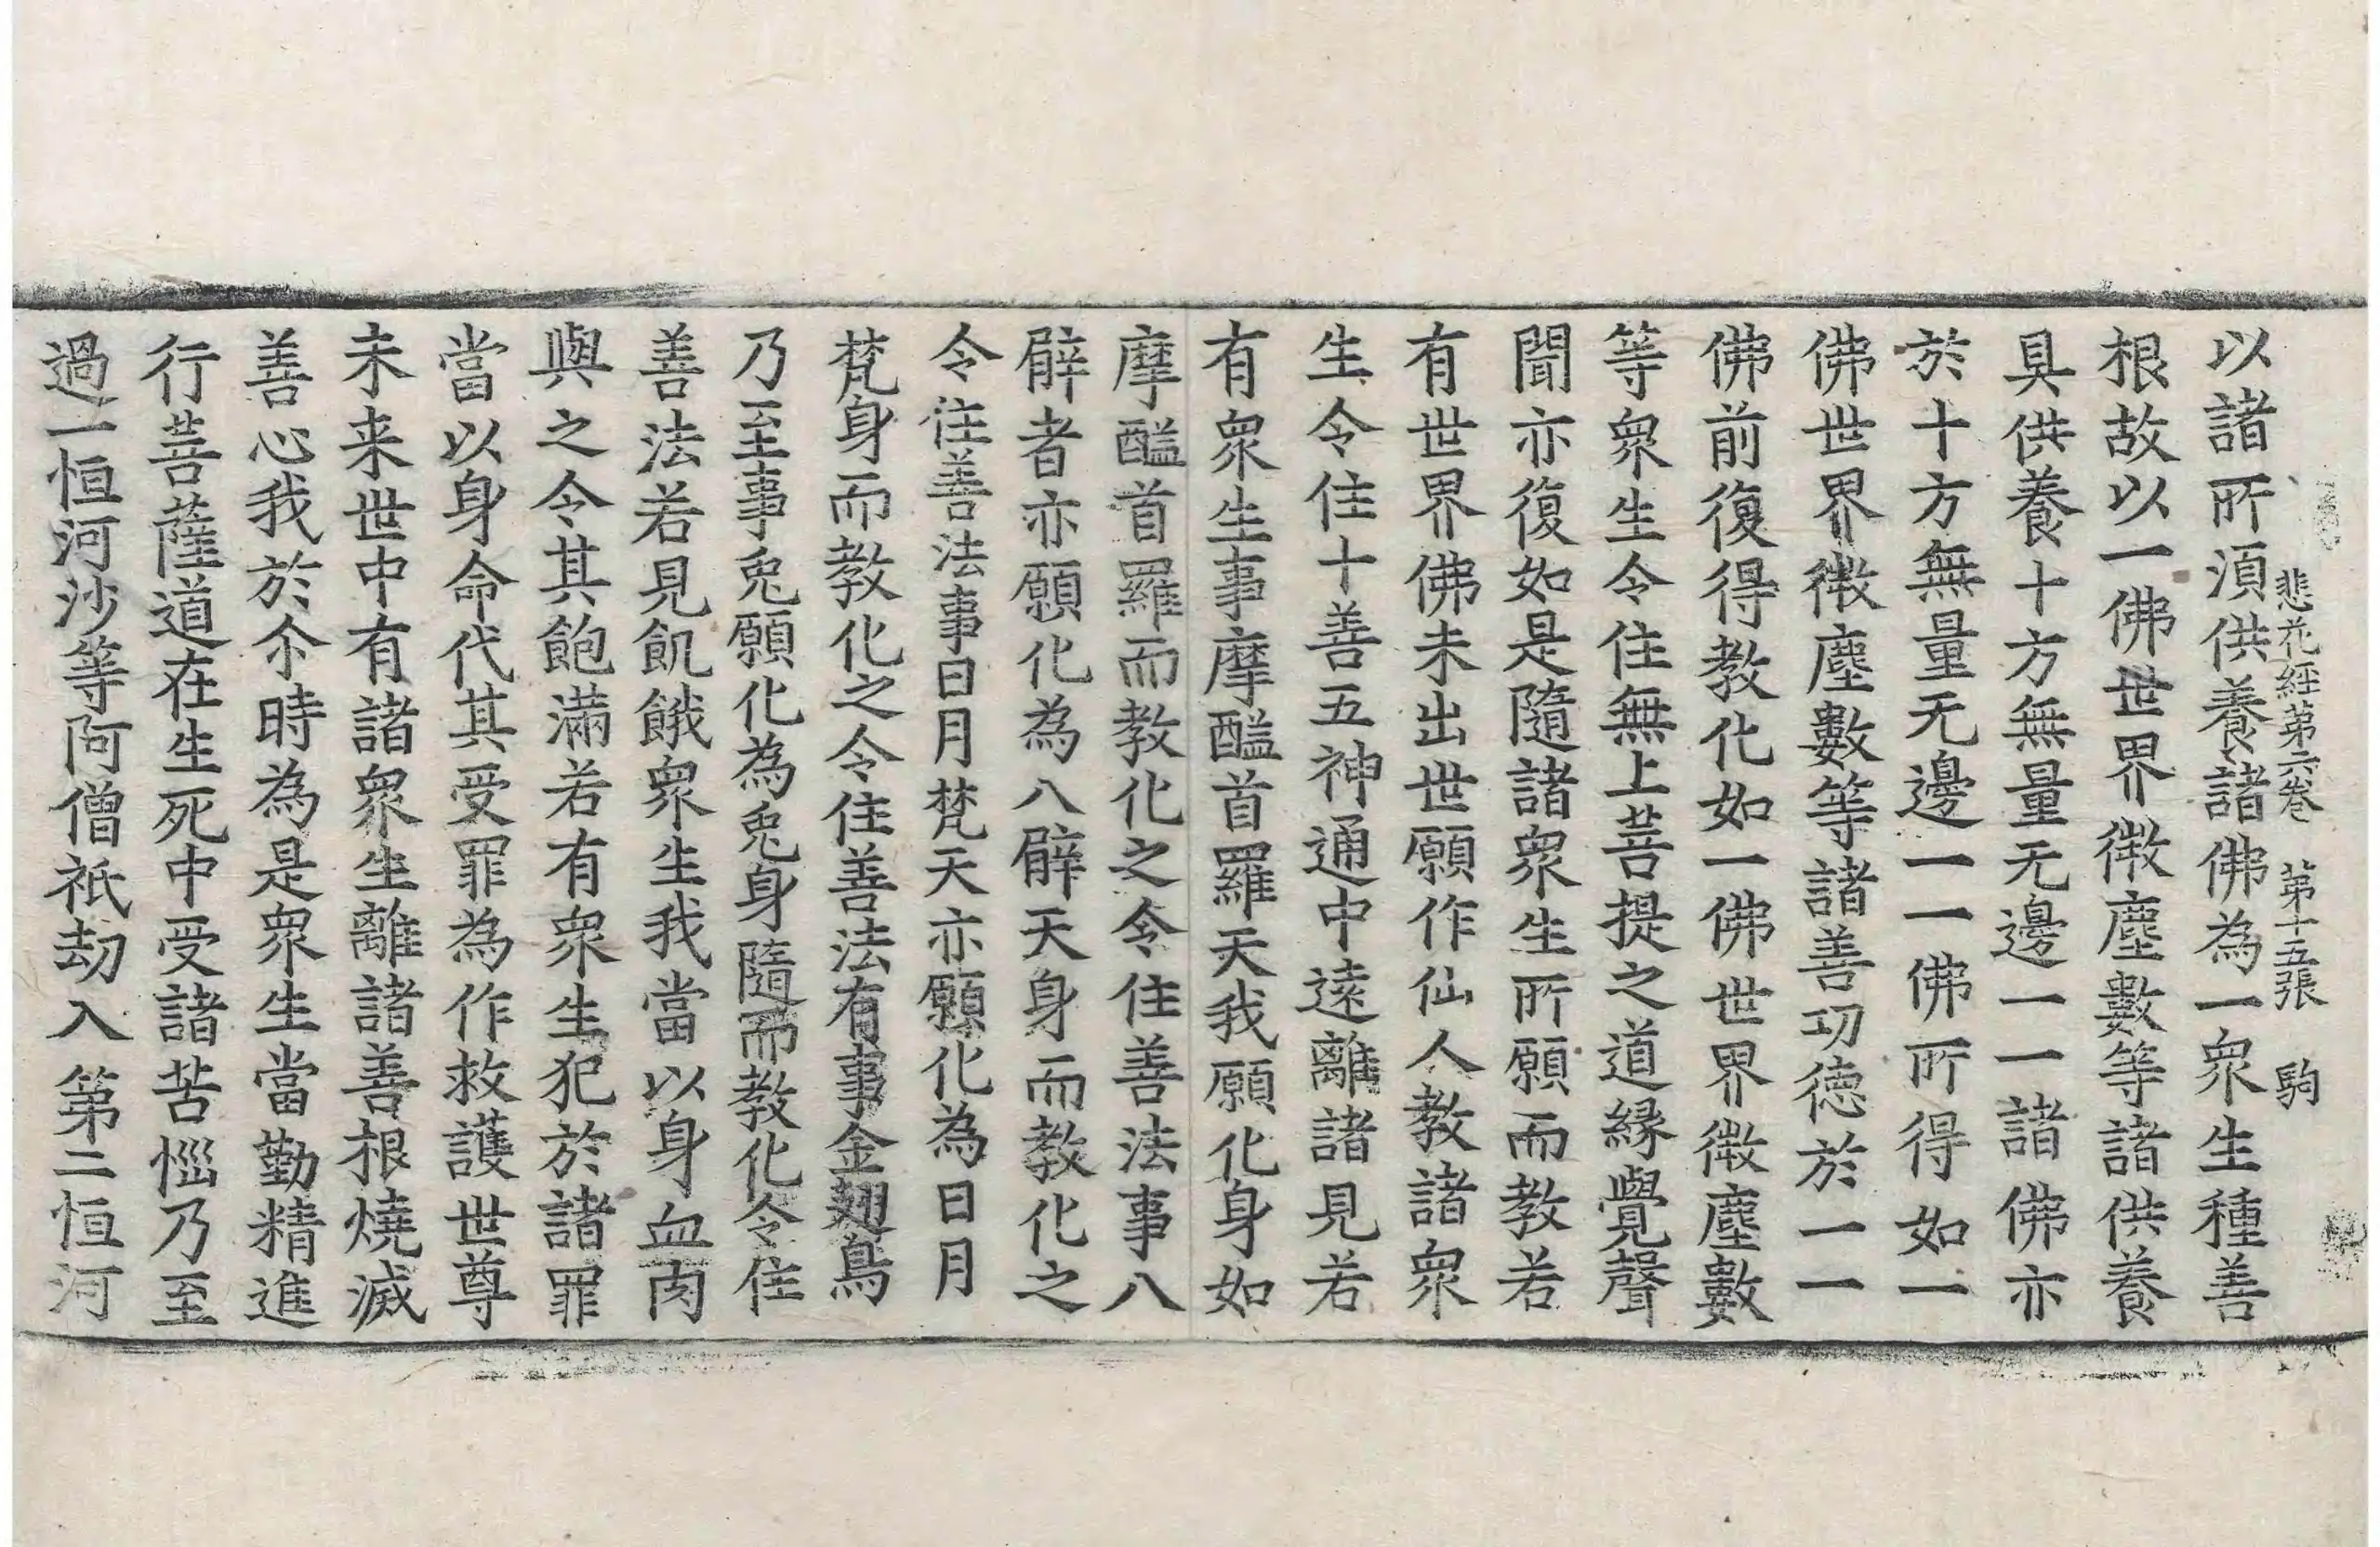 悲花經第六卷　第十五張　駒
以諸所須供養諸佛為一衆生種善
根故以一佛世界微塵數等諸供養
具供養十方無量无邊一一諸佛亦
於十方無量无邊一一佛所得如一
佛世界微塵數等諸善功德於一一
佛前復得教化如一佛世界微塵數
等衆生令住無上菩提之道緣覺聲
聞亦復如是隨諸衆生所願而教若
有世界佛未出世願作仙人教諸衆
生令住十善五神通中遠離諸見若
有衆生事摩醯首羅天我願化身如
摩醯首羅而教化之令住善法事八
臂者亦願化為八臂天身而教化之
令住善法事日月梵天亦願化為日月
梵身而教化之令住善法有事金翅鳥
乃至事兎願化為兎身隨而教化令住
善法若見飢餓衆生我當以身血肉
與之令其飽滿若有衆生犯於諸罪
當以身命代其受罪為作救護世尊
未来世中有諸衆生離諸善根燒滅
善心我於尒時為是衆生當勤精進
行菩薩道在生死中受諸苦惱乃至
過一恒河沙等阿僧祇劫入第二恒河